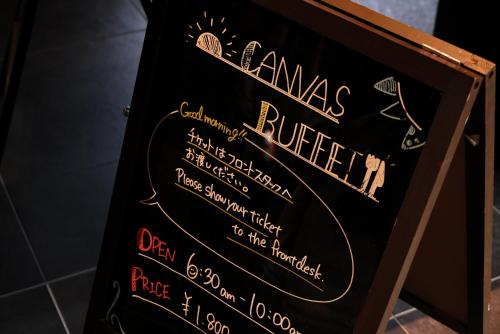 CANVAS
BUFFET
Good morning!!
チケットはフロントスタッフへ
お渡しください。
Please show your ticket
to the frontdesk.
OPEN 6:30am - 10:00am
PRICE ¥1,800